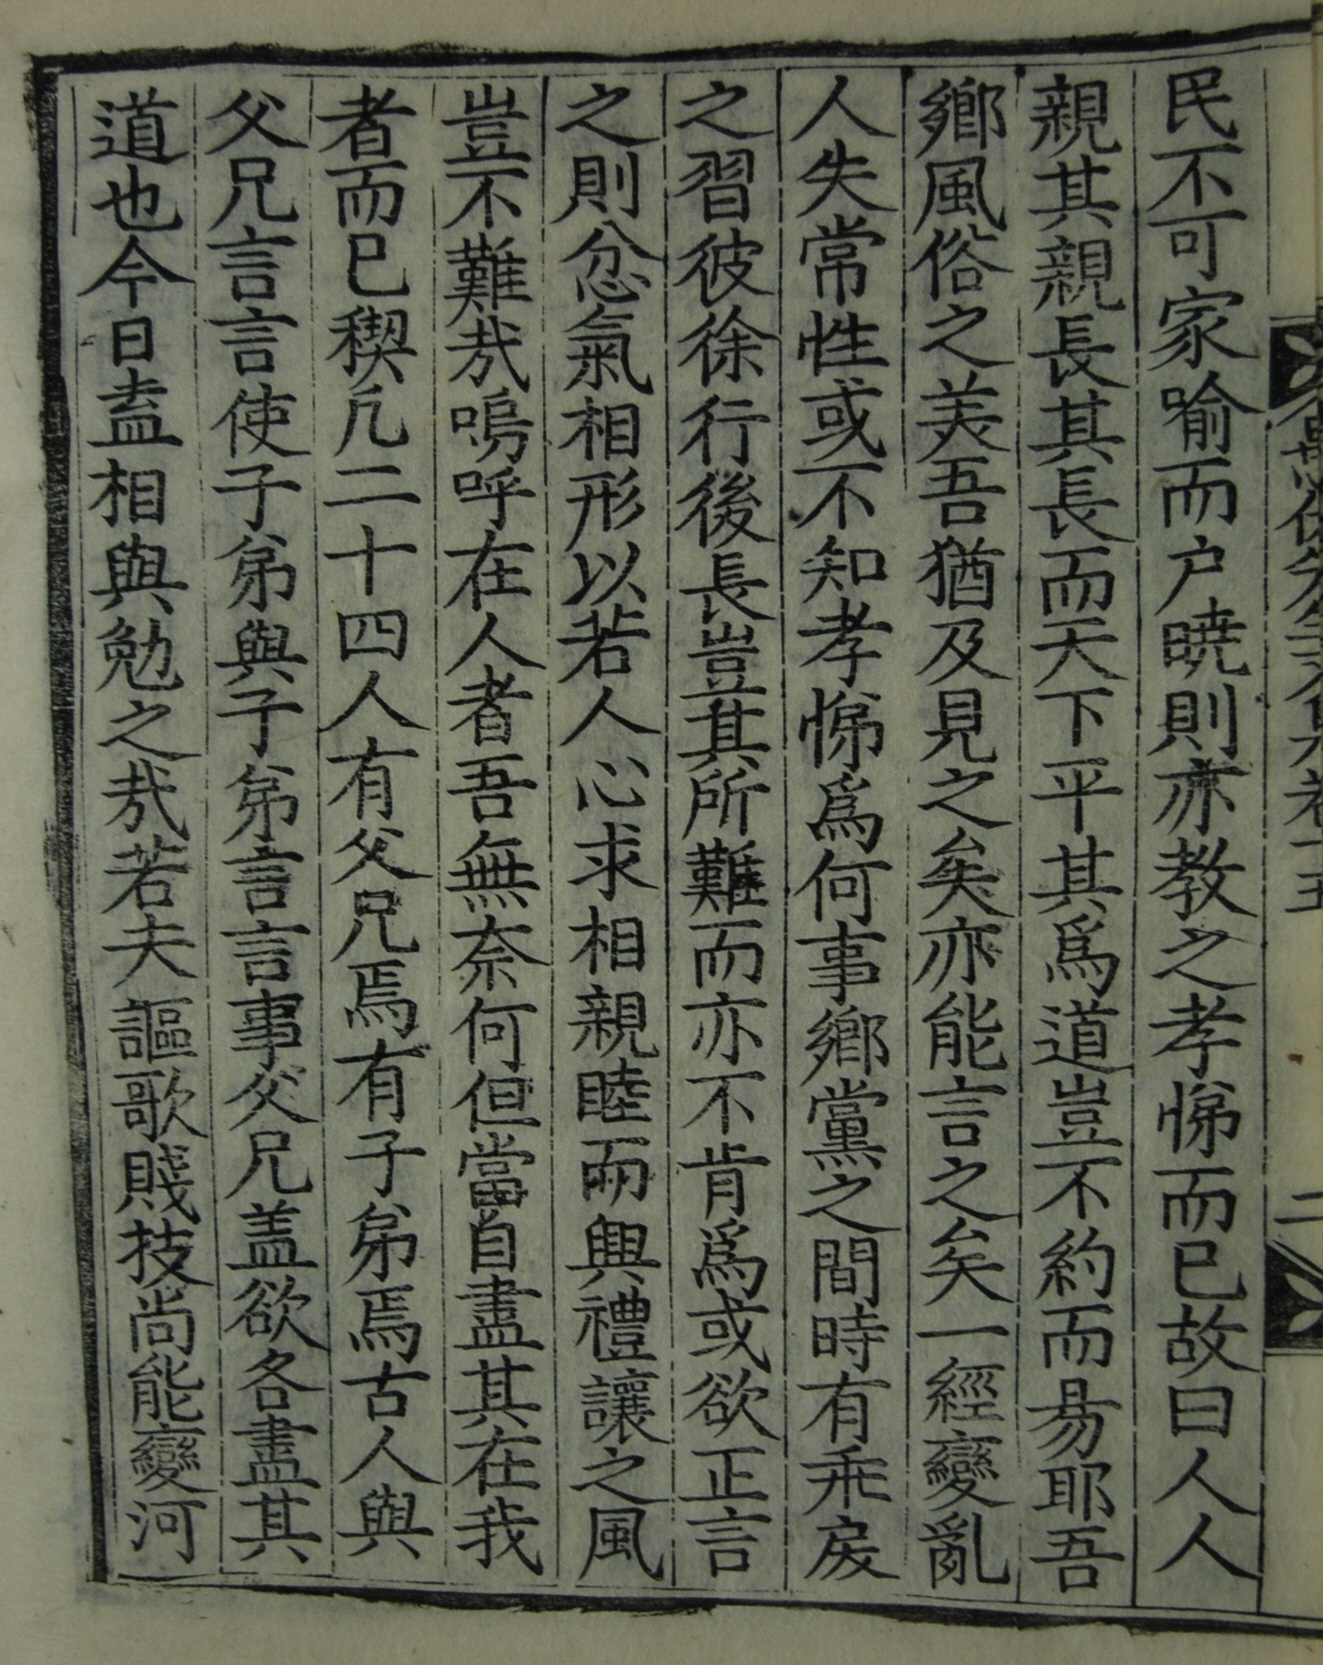 民不可家喻而户曉則亦教之孝悌而已故曰人人
親其親長其長而天下平其爲道豈不約而易耶吾
鄉風俗之美吾猶及見之矣亦能言之矣一經變亂
人失常性或不知孝悌爲何事鄉黨之間時有乖戾
之習彼徐行後長豈其所難而亦不肯爲或欲正言
之則忿氣相形以若人心求相親睦兩興禮讓之風
豈不難哉嗚呼在人者吾無奈何但當自盡其在我
者而已稧凡二十四人有父兄焉有子弟焉古人與
父兄言言使子弟與子弟言言事父兄盖欲各盡其
道也今日盍相與勉之哉若夫謳歌賤技尚能變河